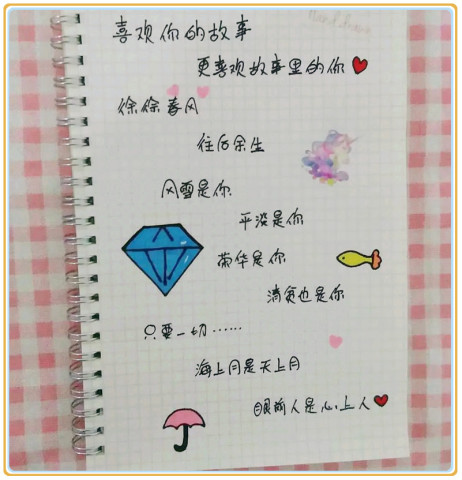 喜欢你的故事
更喜欢故事里的你
徐徐春风
往后余生
风雪是你
平淡是你
荣华是你
清贫也是你
只要一切……
海上月是天上月
眼前人是心上人